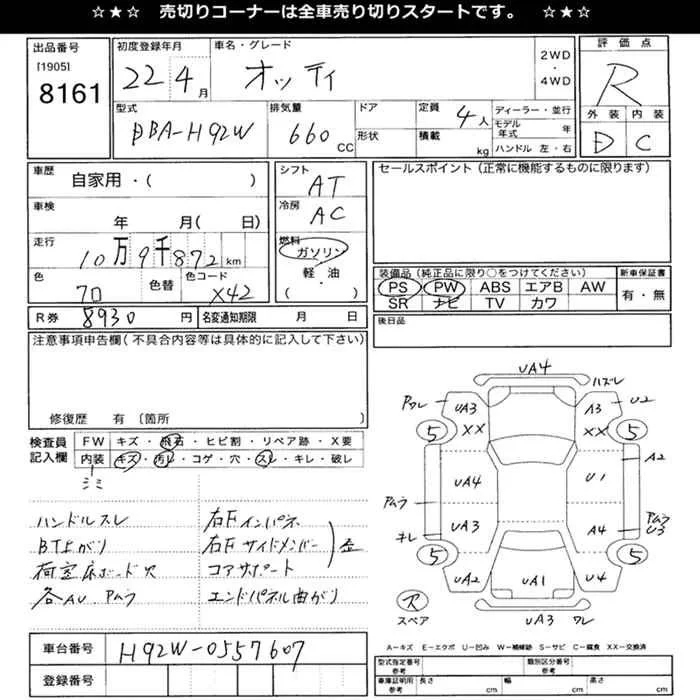 ☆★☆ 売切りコーナーは全車売り切りスタートです。 ☆★☆
出品番号
[1905]
8161
初度登録年月
22 4月
車名・グレード
オッティ
2WD
・
4WD
評価点
R
外装 内装
D C
型式
DBA-H92W
排気量
660 CC
ドア
形状
定員
4人
積載
kg
ディーラー・並行
モデル年式 年
ハンドル 左・右
車歴
自家用・( )
車検
年 月( 日)
走行
10万9千872km
色
70
色替
色コード
X42
シフト
AT
冷房
AC
燃料
ガソリン
軽・油
( )
セールスポイント(正常に機能するものに限ります)
装備品(純正品に限り○をつけてください)
PS PW ABS エアB AW
SR ナビ TV カワ
新車保証書
有・無
R券 8930円
名変通知期限 月 日
後日品
注意事項申告欄(不具合内容等は具体的に記入して下さい)
修復歴 有〔箇所 〕
検査員記入欄
FW キズ・飛石・ヒビ割・リペア跡・X要
内装 キズ・汚レ・コゲ・穴・スレ・キレ・破レ
シミ
ハンドルスレ
BT上がり
荷室床ボード穴
各AU、Pムラ
右Fインパネ
右Fサイドメンバー
コアサポート
歪
エンドパネル曲がり
UA4
ハズレ
Pワレ
UA3
XX
A3
XX
U2
5
5
UA4
U1
A2
Pムラ
UA3
A4
Pムラ
U3
キレ
5
5
UA2
UA1
U4
R
スペア
UA3 ワレ
A−キズ E−エクボ U−凹み W−補修跡 S−サビ C−腐食 XX−交換済
車台番号
H92W-0557607
登録番号
型式指定番号
参考
類別区分番号
参考
車庫証明用
参考
長さ cm
幅 cm
高さ cm